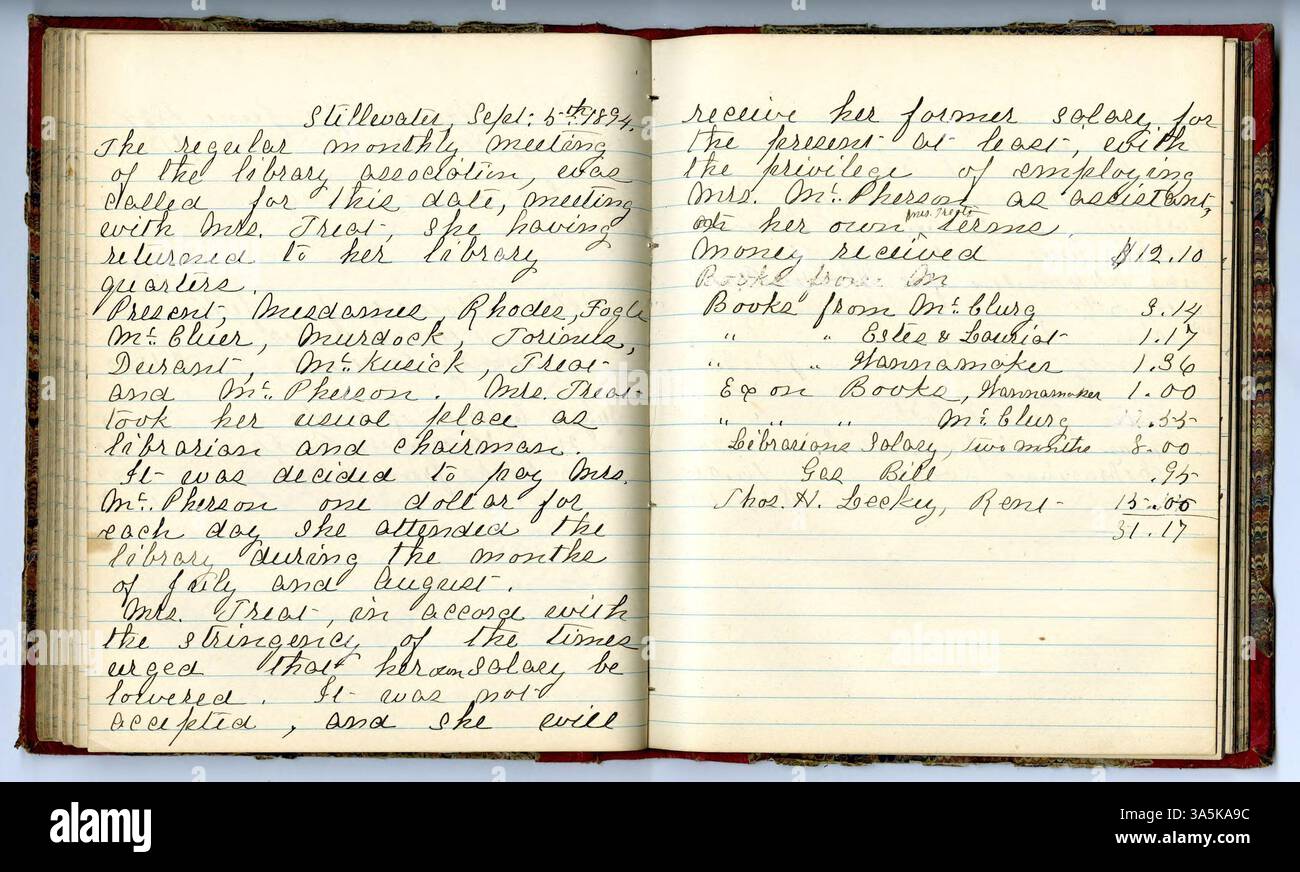 Stillwater, Sept: 5th 1894.
The regular monthly meeting
of the library association, was
called for this date, meeting
with Mrs. Treat, she having
returned to her library
quarters.
Present, Mesdames, Rhodes, Fogle
Mc. Cluer, Murdock, Torinus,
Durant, Mc. Kusick, Treat
and Mc. Pherson. Mrs. Treat
took her usual place as
librarian and chairman.
It was decided to pay Mrs.
Mc. Pherson one dollar for
each day she attended the
library during the months
of July and August.
Mrs. Treat, in accord with
the stringency of the times
urged that her own salary be
lowered. It was not
accepted, and she will
receive her former salary for
the present at least, with
the privilege of employing
Mrs. Mc. Pherson as assistant,
at her own Mrs. Treats terms.
Money received $12.10
Books from M
Books from Mc. Clurg 3.14
" " Estes & Lauriat 1.17
" " Wannamaker 1.36
Ex on Books, Wannamaker 1.00
" " " Mc. Clurg .55
Librarians Salary, two months 8.00
Gas Bill .95
Thos. H. Leckey, Rent 15.00
31.17
alamy
Image ID: 3A5KA9C
www.alamy.com